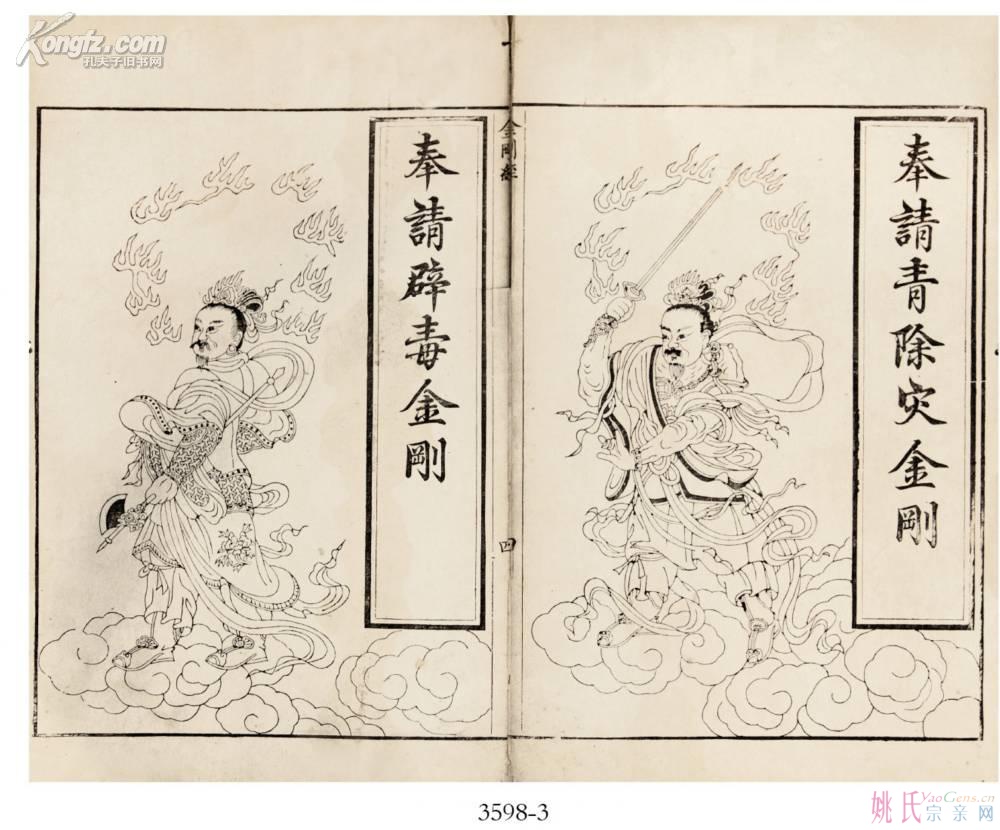 Kongfz.com
孔夫子旧书网
奉請青除灾金剛
金剛經
四
奉請辟毒金剛
3598-3
姚氏YaoGens.cn
宗亲网